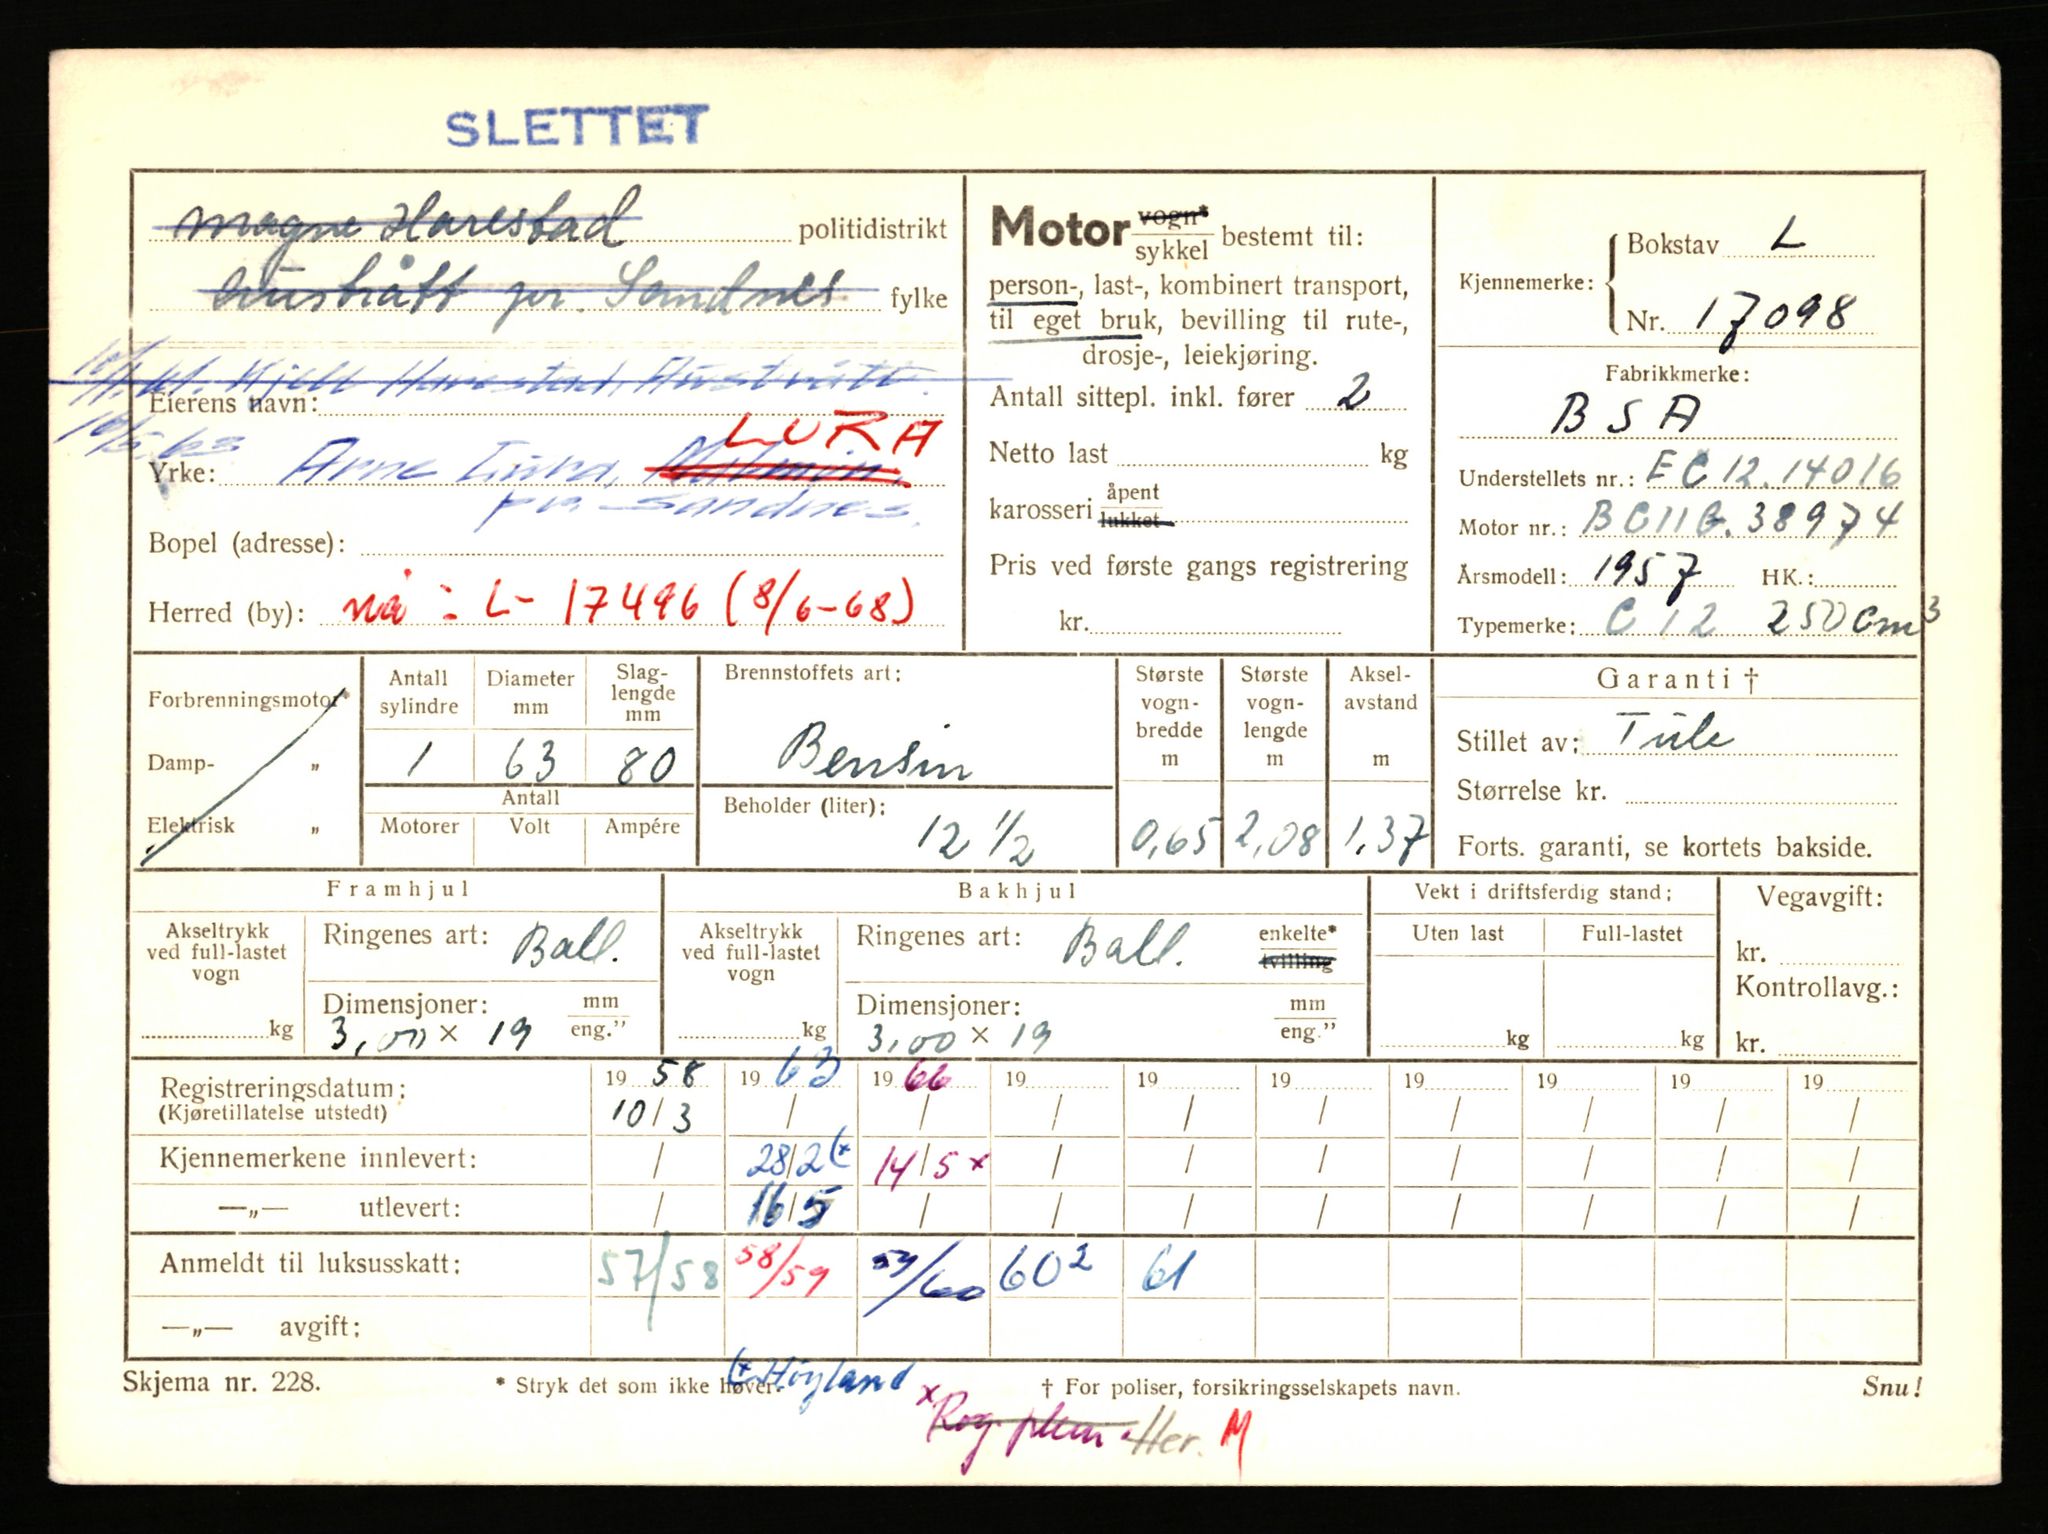 SLETTET
Magne Harestad politidistrikt
Austrått pr. Sandnes fylke
Kjell Harestad, Austrått.
Eierens navn:
LURA
Yrke: Arne Lura, Malmin,
pr. Sandnes.
Bopel (adresse):
Herred (by): nå : L- 17496 (8/6-68)
Motor vogn* sykkel bestemt til:
person-, last-, kombinert transport,
til eget bruk, bevilling til rute-,
drosje-, leiekjøring.
Antall sittepl. inkl. fører 2
Netto last kg
karosseri åpent lukket
Pris ved første gangs registrering
kr.
Kjennemerke: Bokstav L
Nr. 17098
Fabrikkmerke:
BSA
Understellets nr.: EC12.14016
Motor nr.: BC11G.38974
Årsmodell: 1957 HK.:
Typemerke: C12 250cm3
Forbrenningsmotor*
Damp- „
Elektrisk „
Antall sylindre Diameter mm Slag-lengde mm
1 63 80
Antall
Motorer Volt Ampére
Brennstoffets art:
Bensin
Beholder (liter):
12 1/2
Største vogn-bredde m Største vogn-lengde m Aksel-avstand m
0,65 2,08 1,37
Garanti †
Stillet av:
Størrelse kr.
Forts. garanti, se kortets bakside.
Framhjul
Akseltrykk ved full-lastet vogn kg
Ringenes art: Ball.
Dimensjoner: mm eng."
3,00 × 19
Bakhjul
Akseltrykk ved full-lastet vogn kg
Ringenes art: Ball. enkelte* tvilling
Dimensjoner: mm eng."
3,00 × 19
Vekt i driftsferdig stand:
Uten last Full-lastet
kg kg
Vegavgift:
kr.
Kontrollavg.:
kr.
Registreringsdatum: 19 58 19 63 19 66 19 19 19 19 19 19 19
(Kjøretillatelse utstedt) 10/3 / / / / / / / / /
Kjennemerkene innlevert: / 28/2 (x 14/5 x / / / / / / /
—„— utlevert: / 16/5 / / / / / / / /
Anmeldt til luksusskatt: 57/58 58/59 59/60 60² 61
—„— avgift:
Skjema nr. 228. * Stryk det som ikke høver. (x Høyland † For poliser, forsikringsselskapets navn. Snu!
x Rog. Her. M